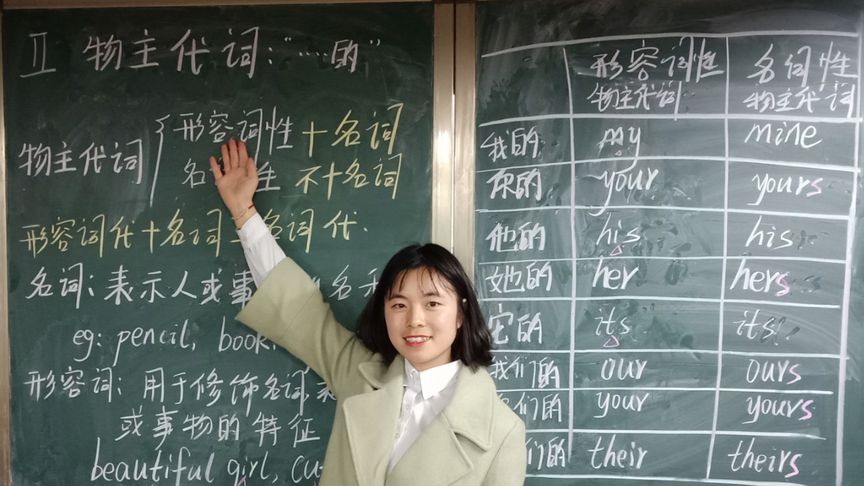 II 物主代词：“……的”
物主代词
形容词性 + 名词
名 性 不+名词
形容词代+名词=名词代.
名词：表示人或事 名
eg: pencil, book,
形容词：用于修饰名词,
或事物的特征
beautiful girl,
形容词性物主代词 名词性物主代词
我的 my mine
你的 your yours
他的 his his
她的 her hers
它的 its its
我们的 our ours
们的 your yours
们的 their theirs